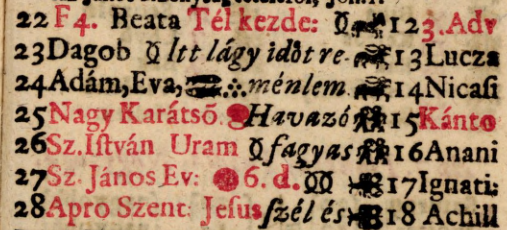 22 F4. Beata Tél kezde: 12 3. Adv
23 Dagob Itt lágy időt re- 13 Lucza
24 Adám, Eva, ménlem. 14 Nicaſi
25 Nagy Karátsō. Havazó 15 Kánto
26 Sz. Iſtván Uram fagyas 16 Anani
27 Sz. János Ev: 6. d. 17 Ignati:
28 Apro Szent: Jeſus ſzél és 18 Achill